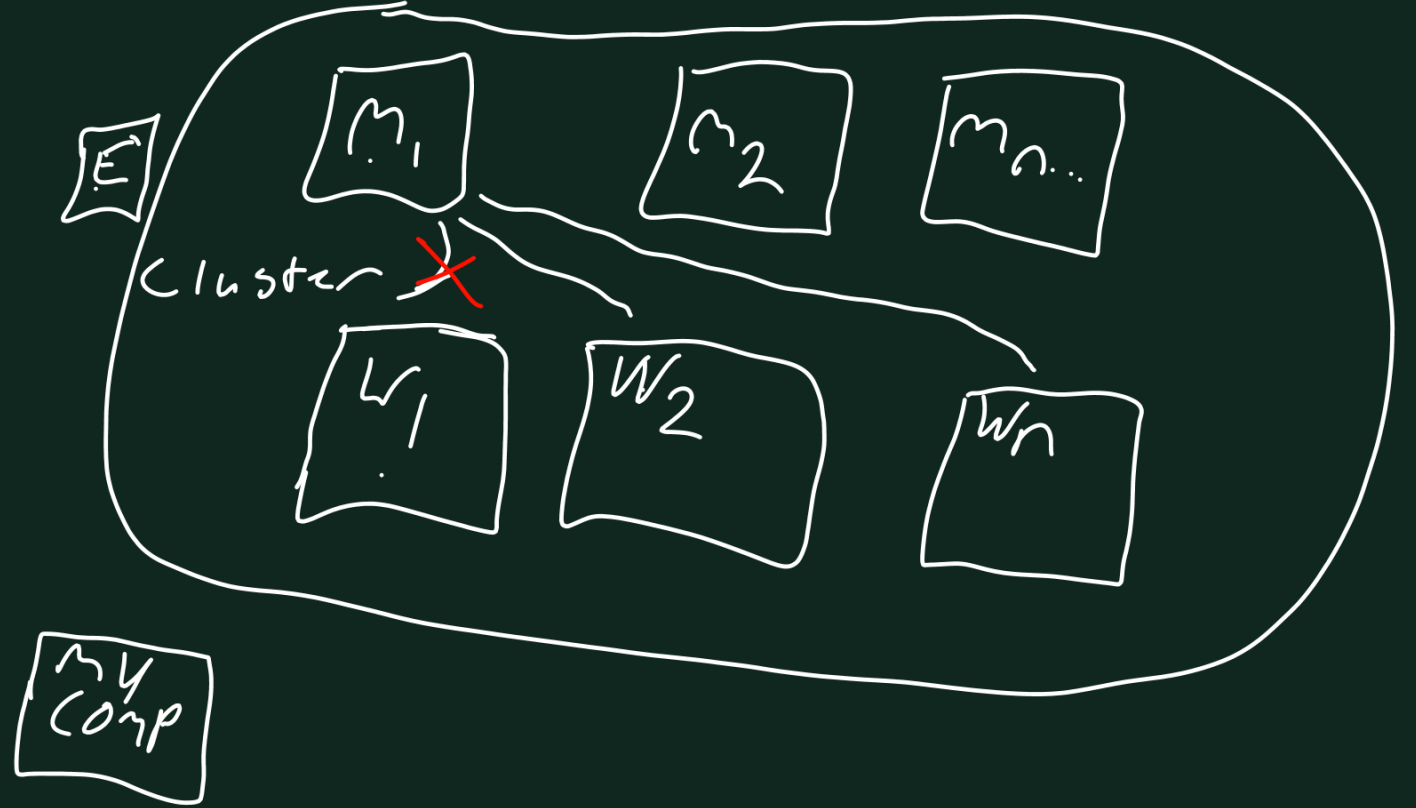 M1
M2
Mn...
E
Cluster
W1
W2
Wn
my
comp